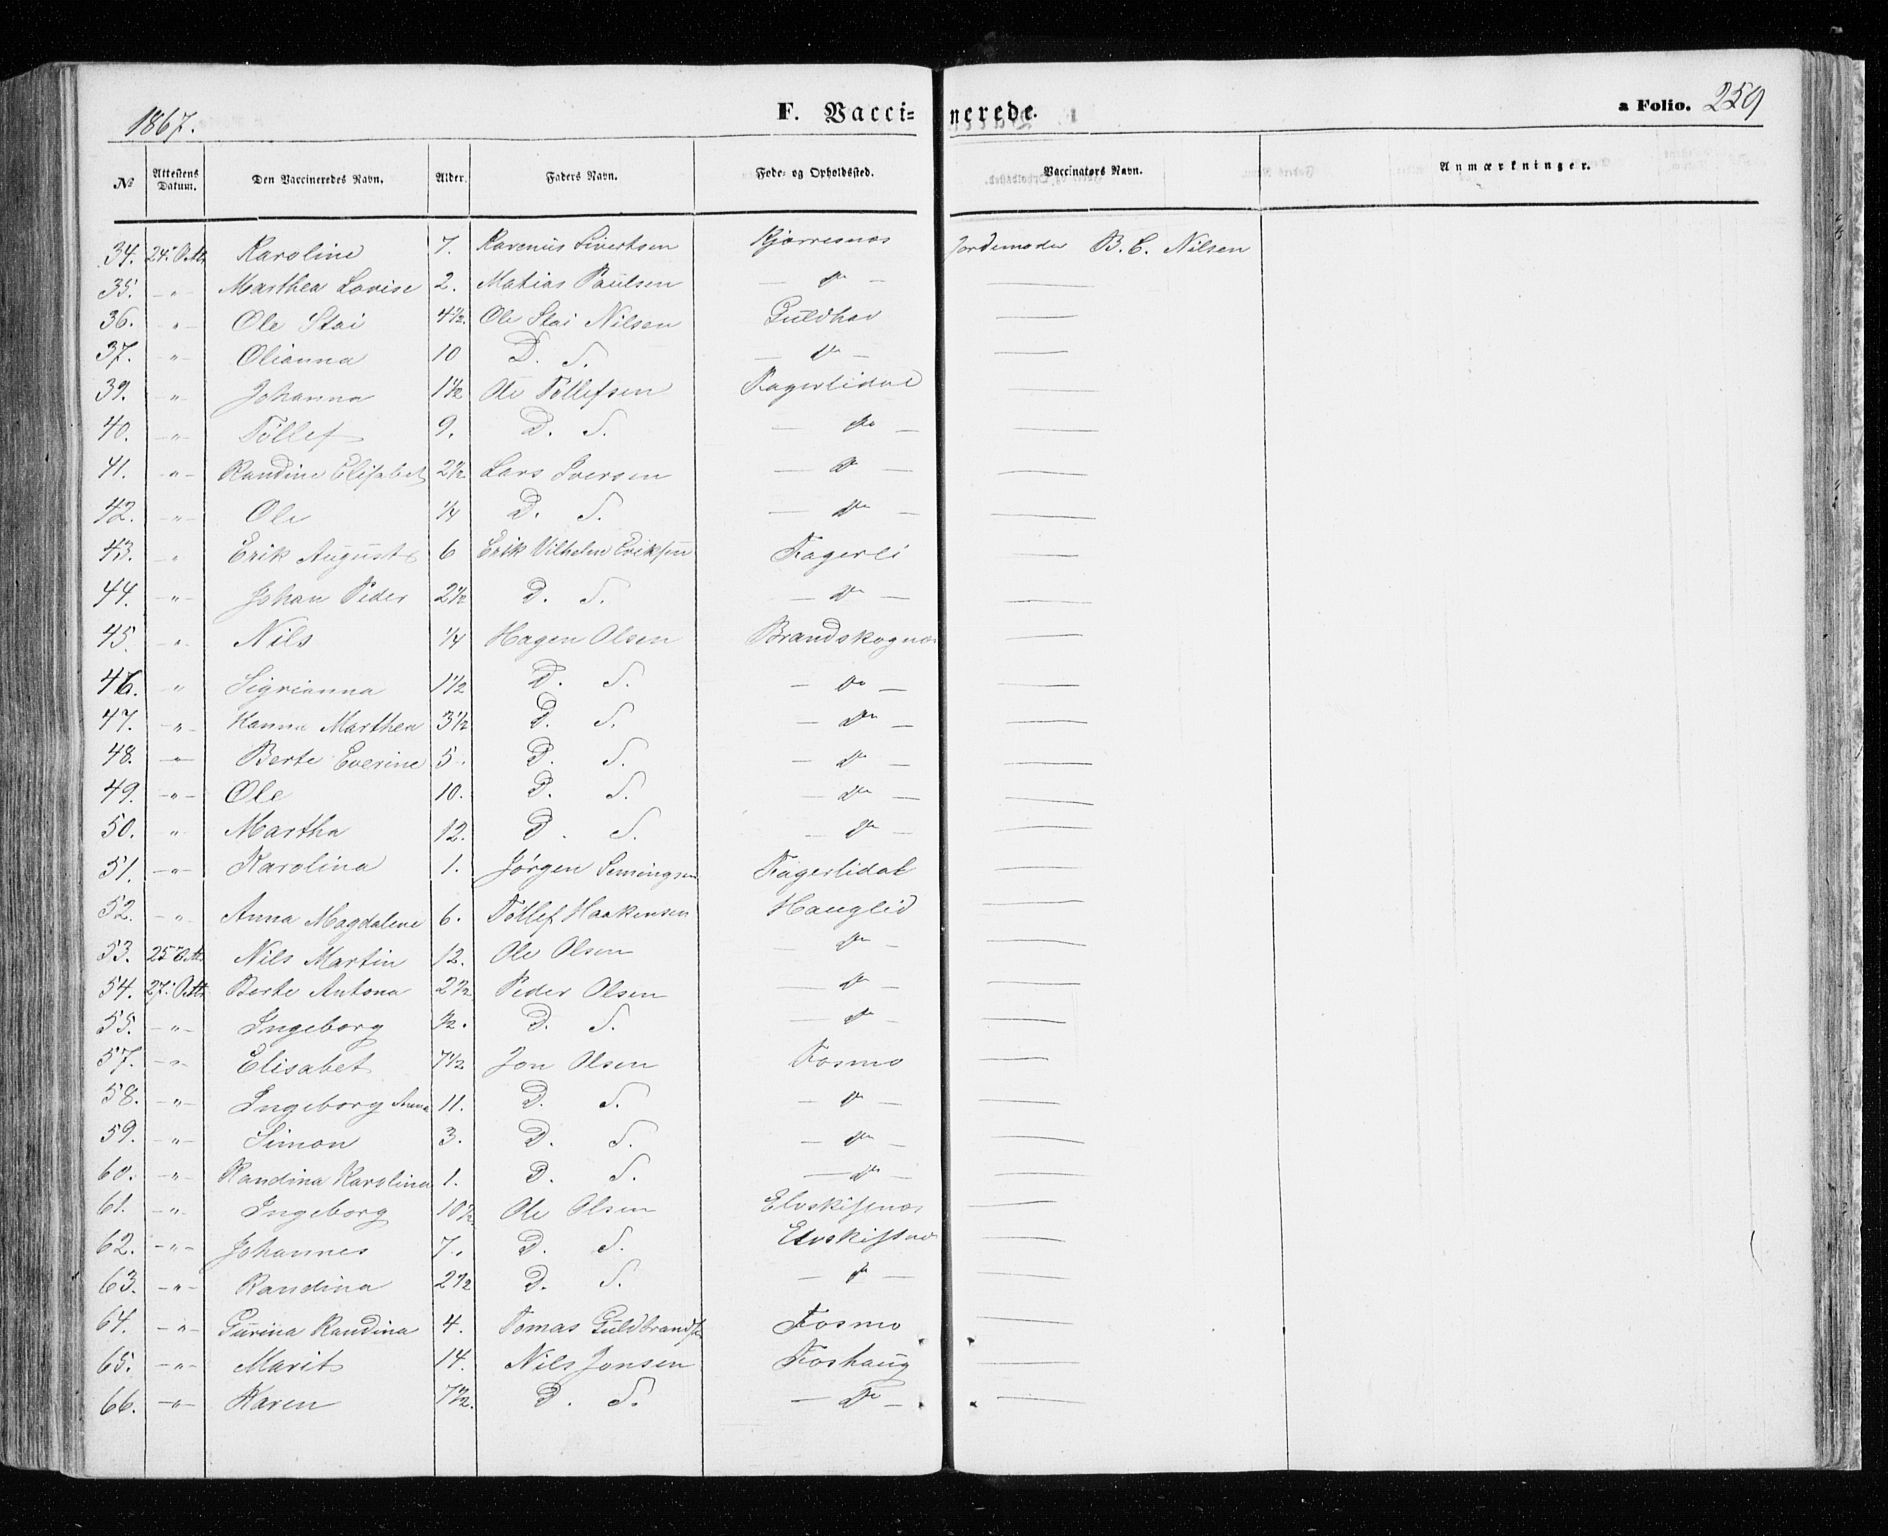 1867. F. Vaccinerede. a Folio. 259
No Attestens Datum. Den Vaccineredes Navn. Alder. Faders Navn. Føde- og Opholdssted. Vaccinators Navn. Anmærkninger.
34. 24. Octbr Karoline 7. Karenius Sivertsen Kjørresnæs Jordemoder B. C. Nilsen
35. -"- Marthea Lovise 2. Matias Paulsen — do —
36. " Ole Stai 4½. Ole Stai Nilsen Guldhav
37. " Olianna 10 D. S. — do —
39. " Johanna 1½ Ole Tøllefsen Fagerlidal
40. " Tøllef 9. D. S. — do —
41. -"- Randine Elisabet 2½ Lars Iversen — do —
42. -"- Ole ¼ D. S. — do —
43. " Erik August 6 Erik Vilhelm Eriksen Fagerli
44. " Johan Peder 2½ D. S. — do —
45. " Nils ¼ Hagen Olsen Brandskognæs
46. " Sigrianna 1½ D. S. — do —
47. " Hanna Marthea 3½ D. S. — do —
48. -"- Berte Everine 5. D. S. — do —
49. -"- Ole 10. D. S. — do —
50. " Martha 12. D. S. — do —
51. -"- Karolina 1. Jørgen Semingsen Fagerlidal
52. -"- Anna Magdalene 6. Tøllef Haakensen Hauglid
53. 25 Octbr Nils Martin 12. Ole Olsen — do —
54. 27. Octbr Berte Antona 2½ Peder Olsen — do —
55. -"- Ingeborg ½. D. S. — do —
57. -"- Elisabet 7½ Jon Olsen Fosmo
58. -"- Ingeborg Anna 11. D. S. — do —
59. -"- Simon 3. D. S. — do —
60. -"- Randina Karolina 1. D. S. — do —
61. -"- Ingeborg 10½ Ole Olsen Elvskiftnæs
62. -"- Johannes 7. D. S. Elvskiftnæs
63. -"- Randina 2½ D. S. — do —
64. -"- Gurina Randina 4. Tomas Guldbrandsen Fosmo
65. -"- Marit 14. Nils Jonsen Foshaug
66. -"- Karen 7½. D. S. — do —